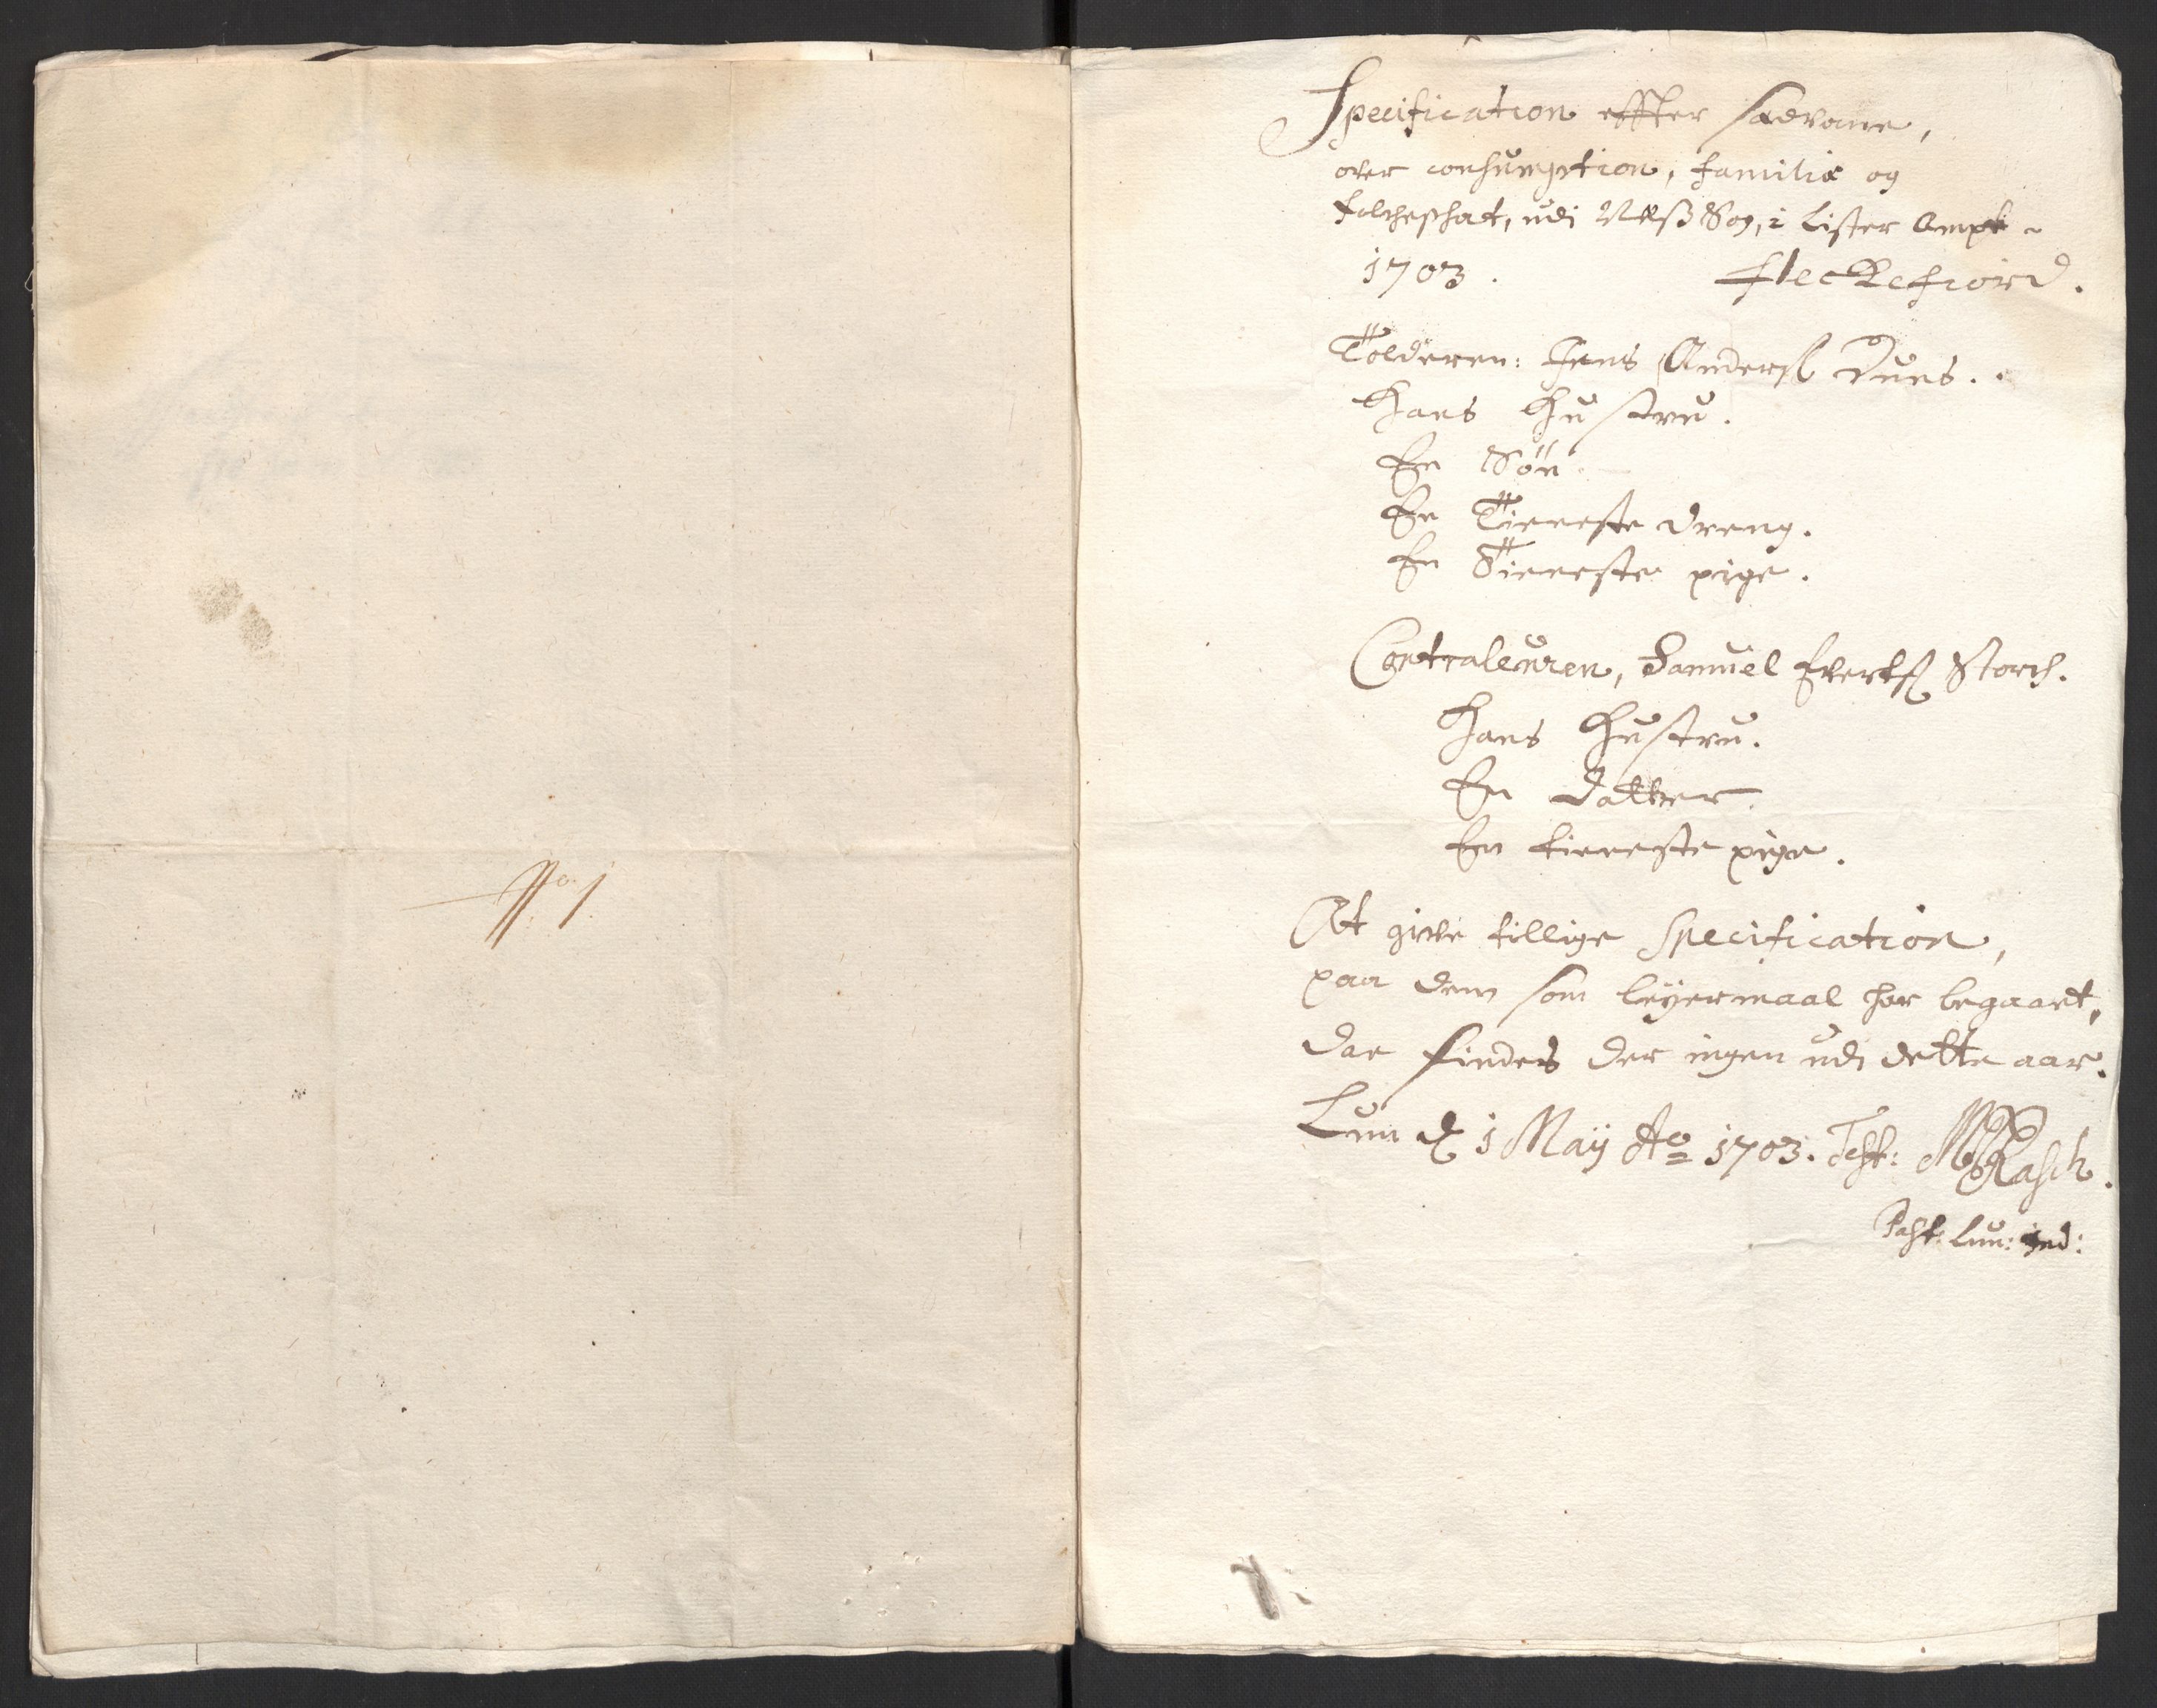 No. 1.
Specification effter sædvane,
over consumption, familie og
folcheschat, udi Næss Sog, i Lister Ampt
1703. Fleckefiord.
Tolderen: Jens Anderss Dues.
Hans Hustru.
En Søn
En Tieneste dreng.
En Tieneste pige.
Contraleuren, Samuel Evertss Storch.
Hans Hustru.
En datter.
En tieneste pige.
At give tillige Specification,
paa dem som leyermaal har begaaet,
da findes der ingen udi dette aar.
Lun d 1 Maij Ao 1703. Test: Rasch.
Past: Lun: